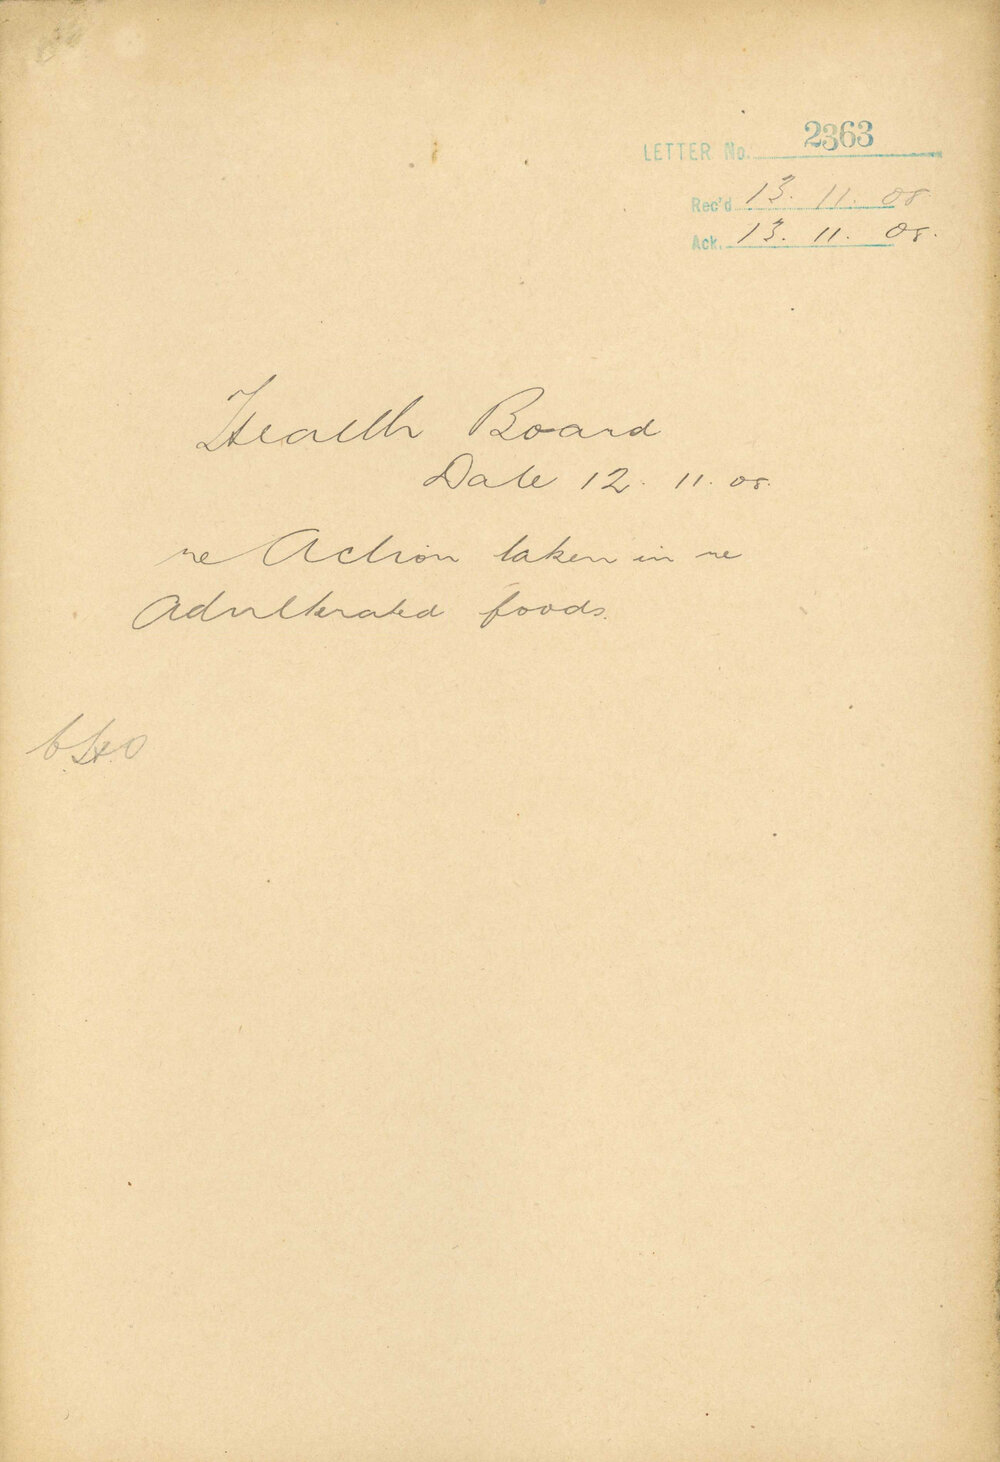 LETTER No. 2363
Rec'd 13. 11. 08
Ack. 13. 11. 08.
Health Board
Date 12. 11. 08.
re Action taken in re
Adulterated foods.
C.H.O